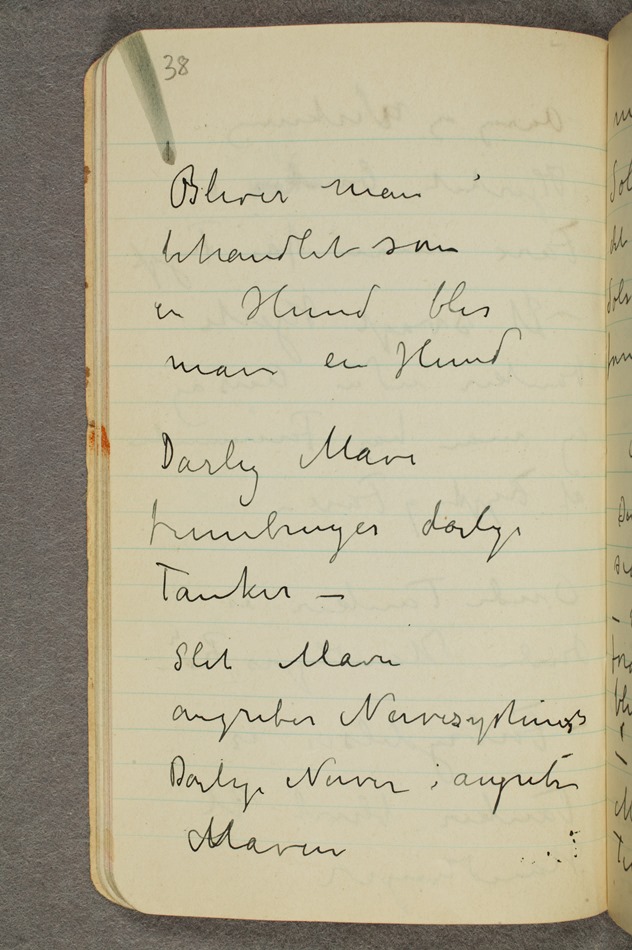 38
Bliver man
behandlet som
en Hund blir
man en Hund
Darlig Mave
frembringer darlige
Tanker —
Slet Mave
angriber Nervesystemet
Darlige Nerver angriber
Maven